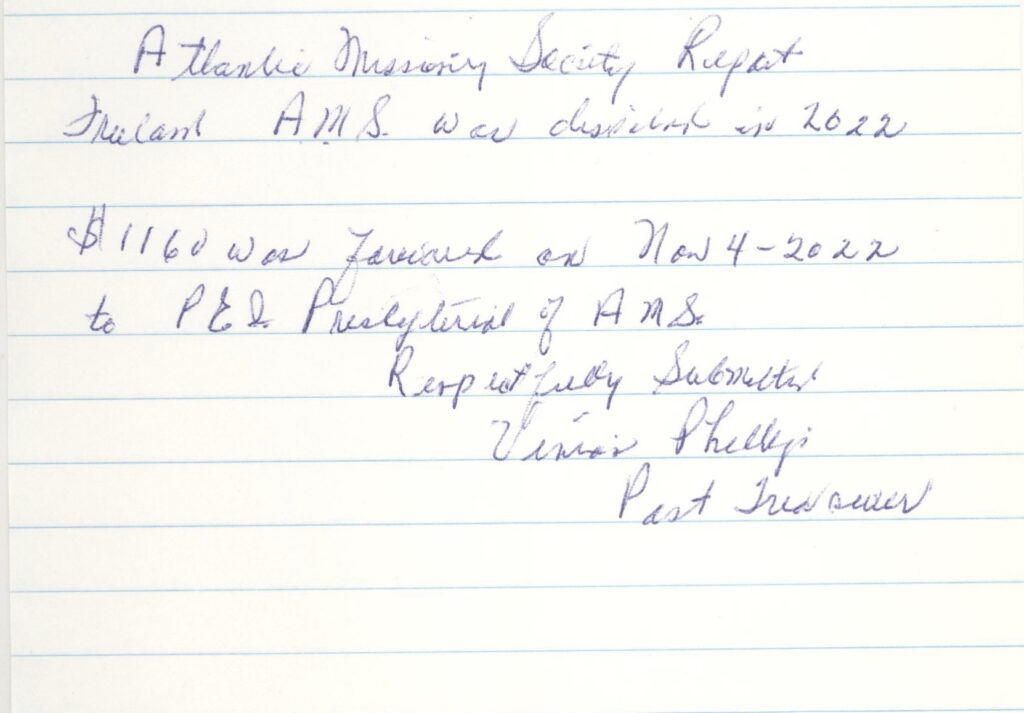 Atlantic Missionary Society Report
Freeland A.M.S. was dissolved in 2022
$1160 was forward on Nov 4-2022
to P.E.I. Presbyterial of A.M.S.
Respectfully Submitted
Phillips
Past Treasurer